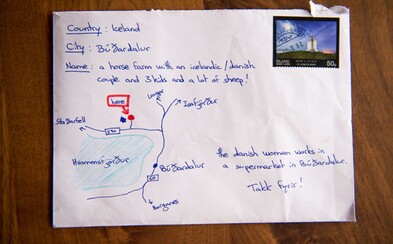 Country : Iceland
City : Búðardalur
Name : a horse farm with an icelandic/danish
couple and 3 kids and a lot of sheep!
here
Ísafjörður
Hvammsfjörður
Búðardalur
60
Borganes
the danish woman works in
a supermarket in Búðardalur.
Takk fyrir!
ÍSLAND
50g